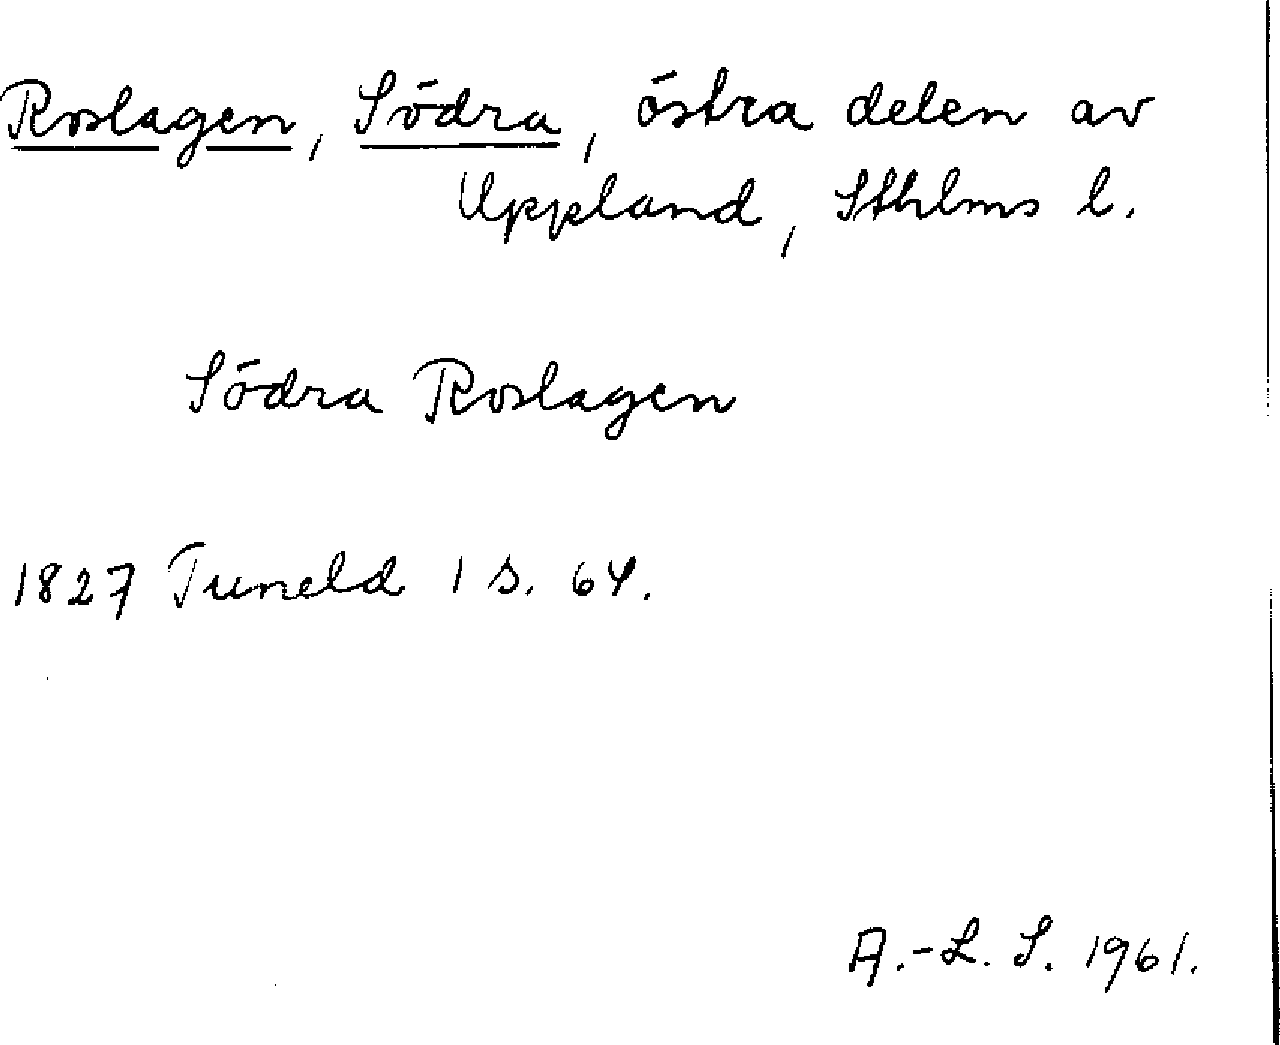 Roslagen, Södra, östra delen av
Uppland, Sthlms l.
Södra Roslagen
1827 Tuneld 1 s. 64.
A.-L. S. 1961.